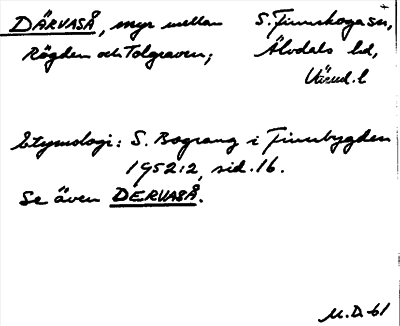 DÄRVASÅ, myr mellan S. Finnskoga sn,
Rögden och Tolgraven; Älvdals hd,
Värml. l
Etymologi: S. Bograng i Finnbygden
1952:2, sid. 16.
Se även DERVASÅ.
M.D-61